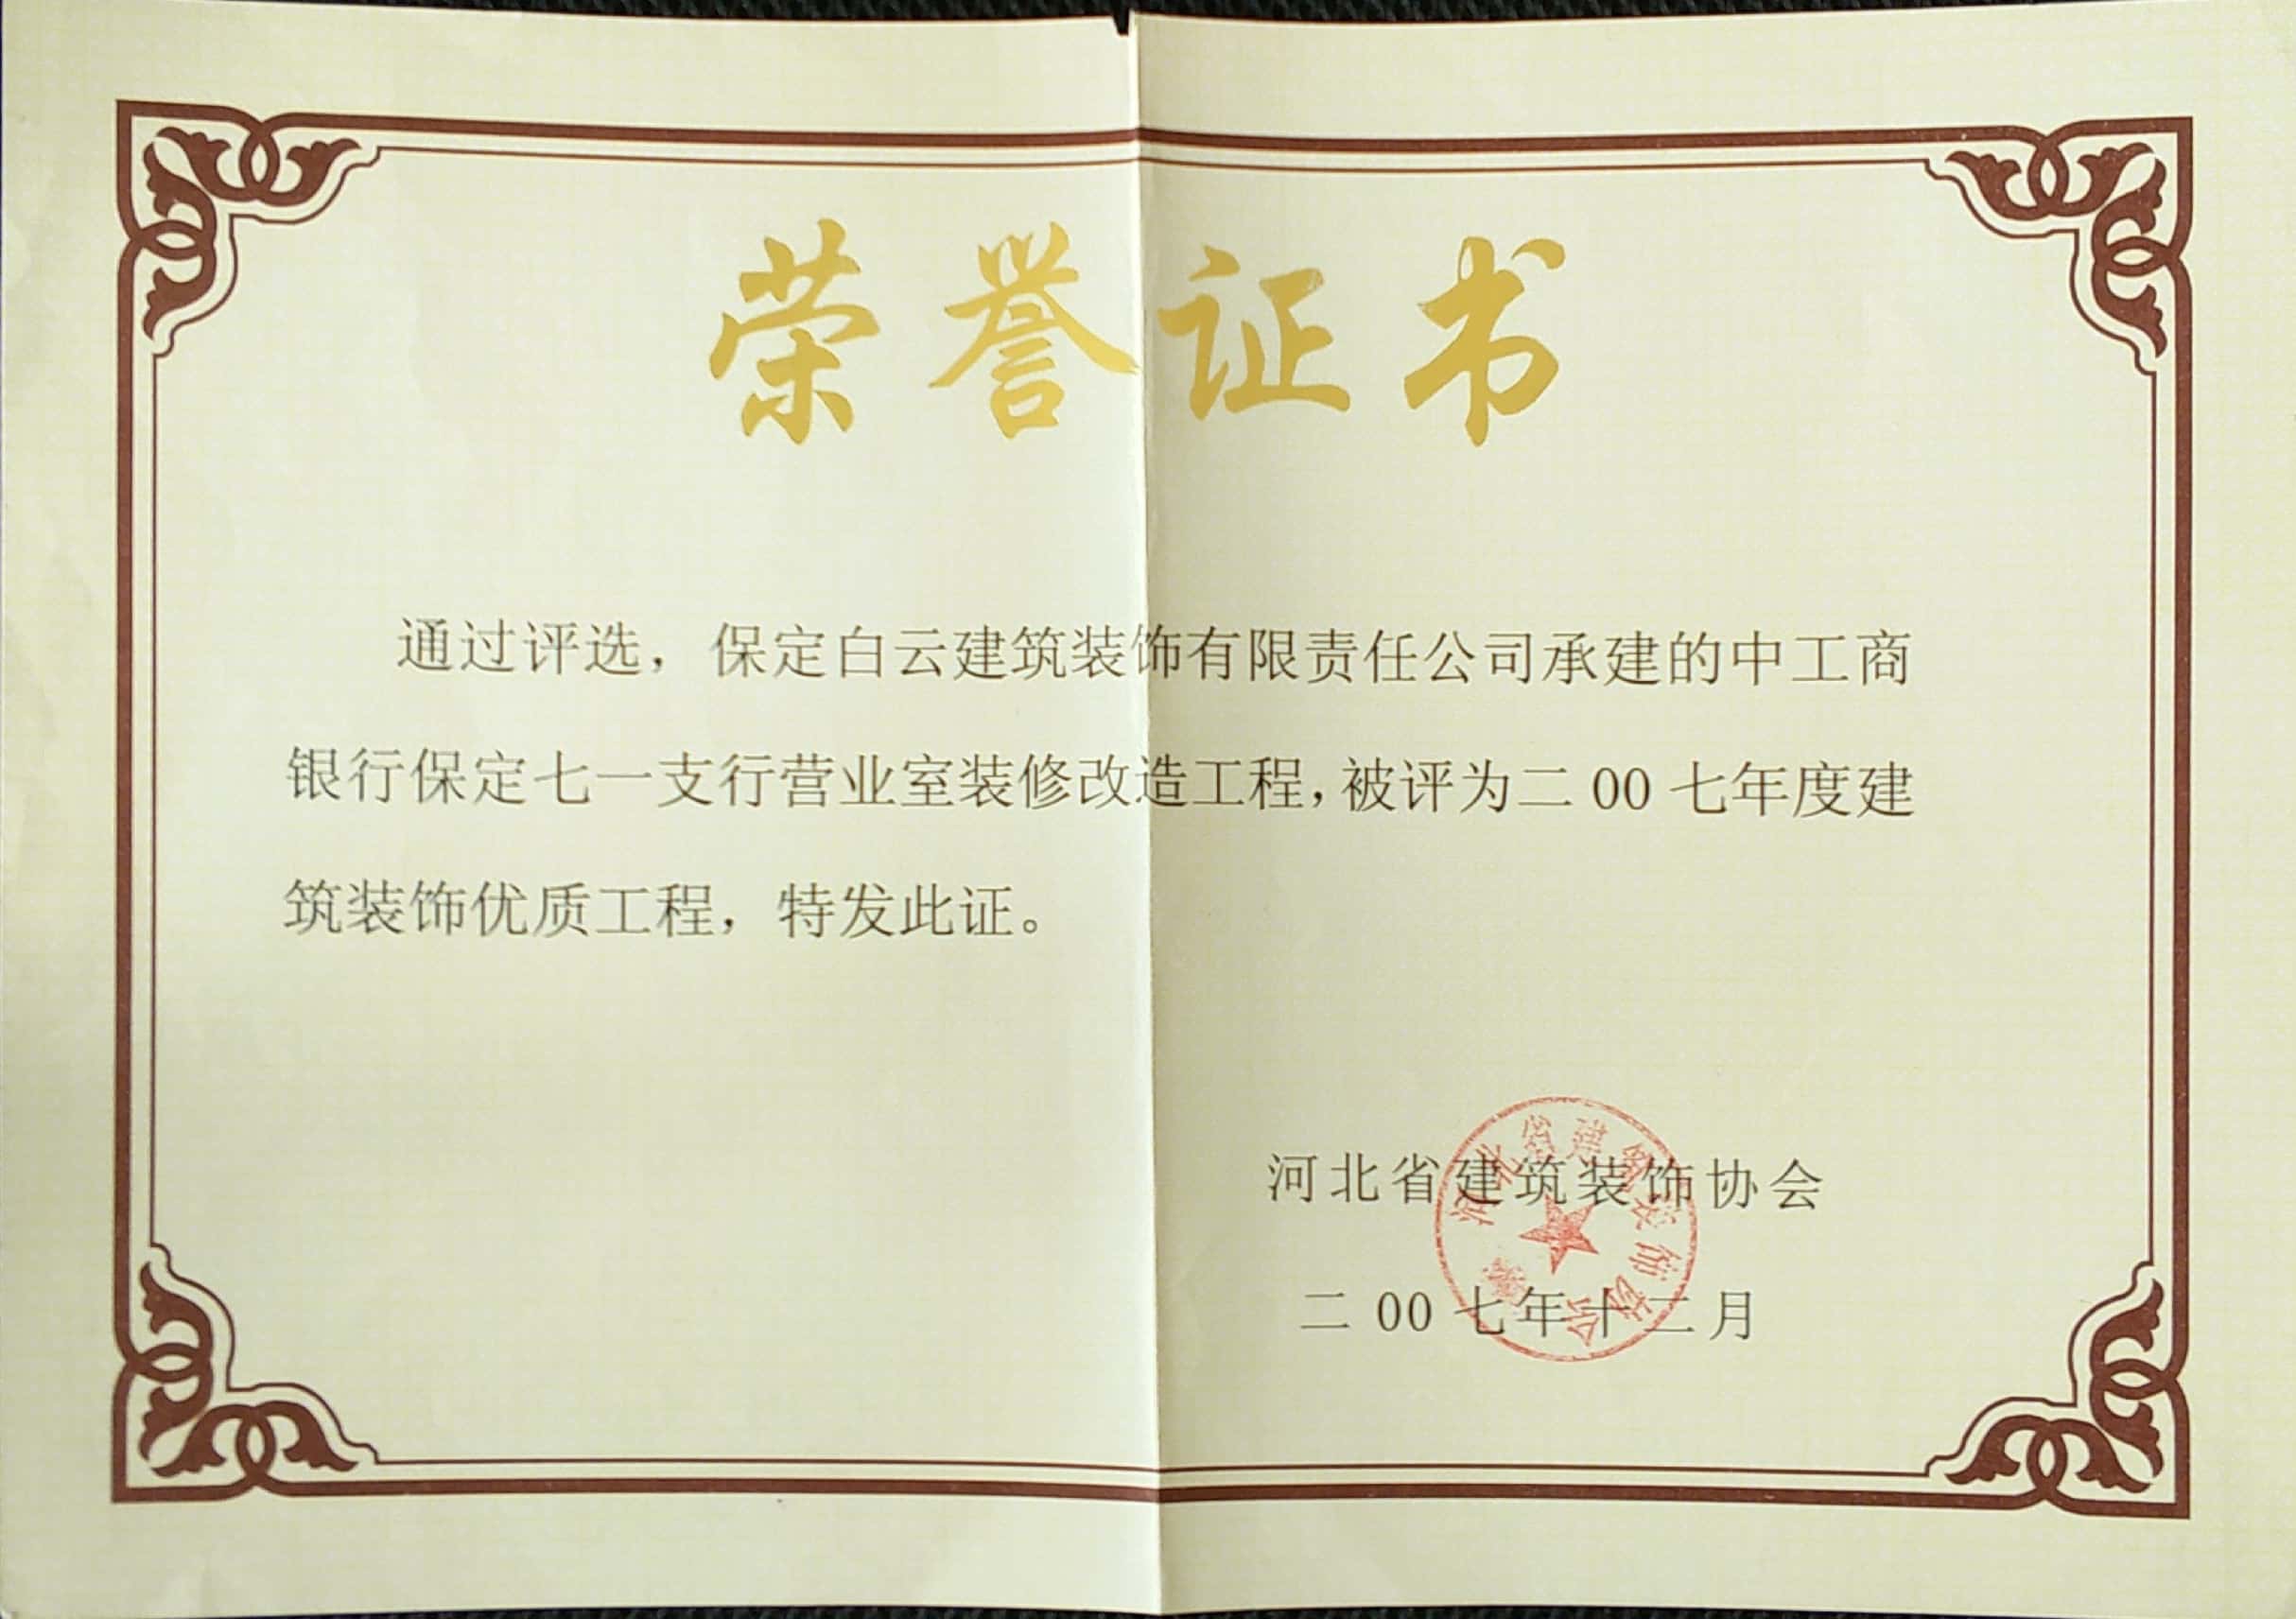 荣誉证书
通过评选，保定白云建筑装饰有限责任公司承建的中工商
银行保定七一支行营业室装修改造工程，被评为二00七年度建
筑装饰优质工程，特发此证。
河北省建筑装饰协会
二00七年十二月
河北省建筑装饰协会